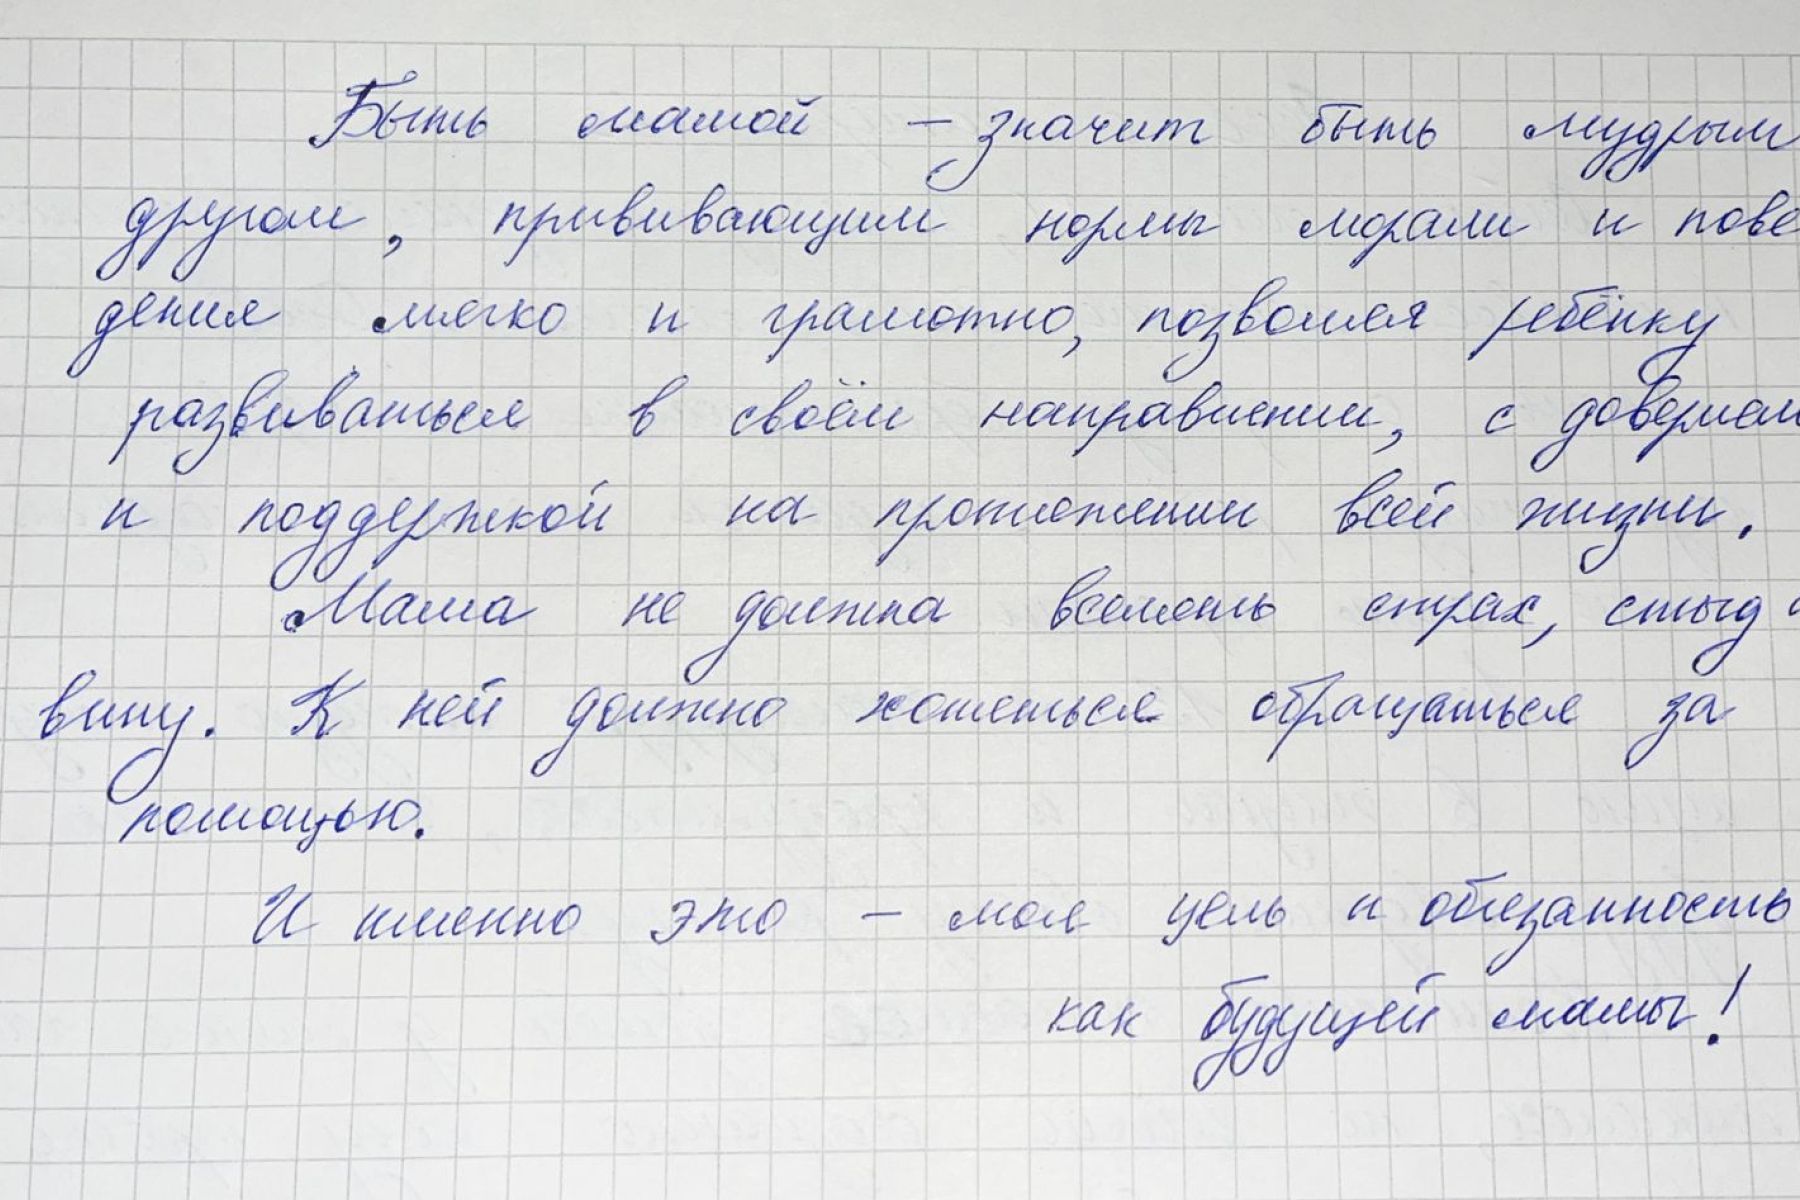 Быть мамой – значит быть мудрым
другом, прививающим нормы морали и пове
дения мягко и грамотно, позволяя ребёнку
развиваться в своём направлении, с доверием
и поддержкой на протяжении всей жизни.
Мама не должна вселять страх, стыд и
вину. К ней должно хотеться обращаться за
помощью.
И именно это – моя цель и обязанность
как будущей мамы!